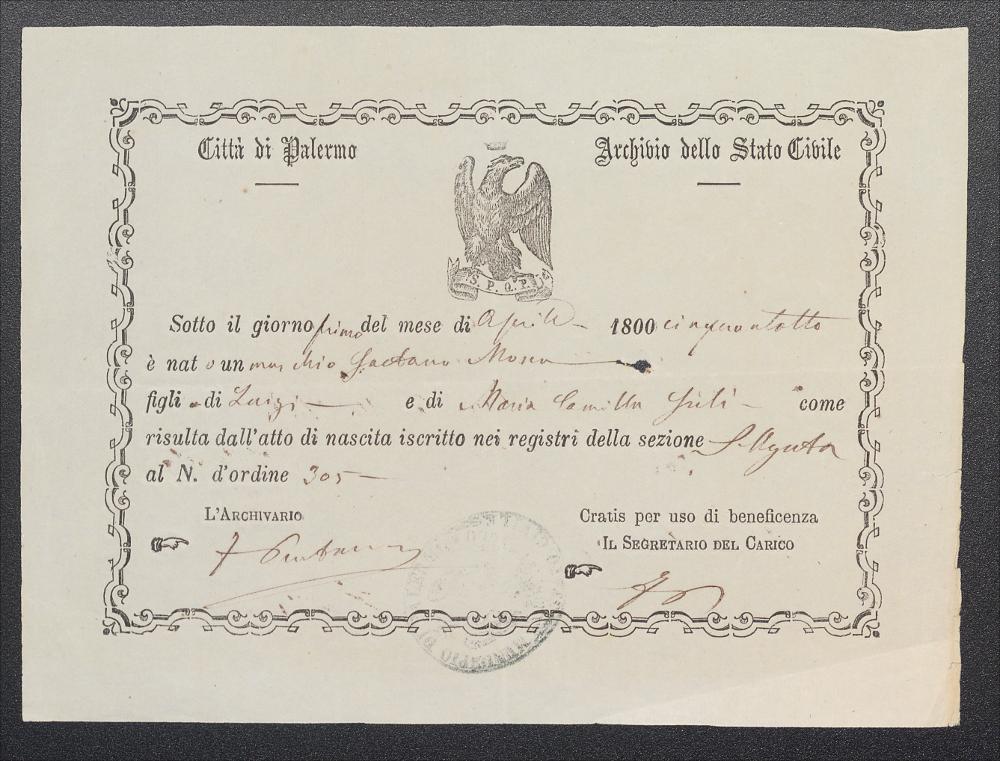 Città di Palermo
Archivio dello Stato Civile
S. P. Q. P.
Sotto il giorno primo del mese di Aprile 1800 cinquantotto
è nato un maschio Gaetano Mosca
figlio di Luigi e di Maria Camilla come
risulta dall'atto di nascita iscritto nei registri della sezione S. Agata
al N. d'ordine 305
L'Archivario
Gratis per uso di beneficenza
Il Segretario del Carico
MUNICIPIO DI